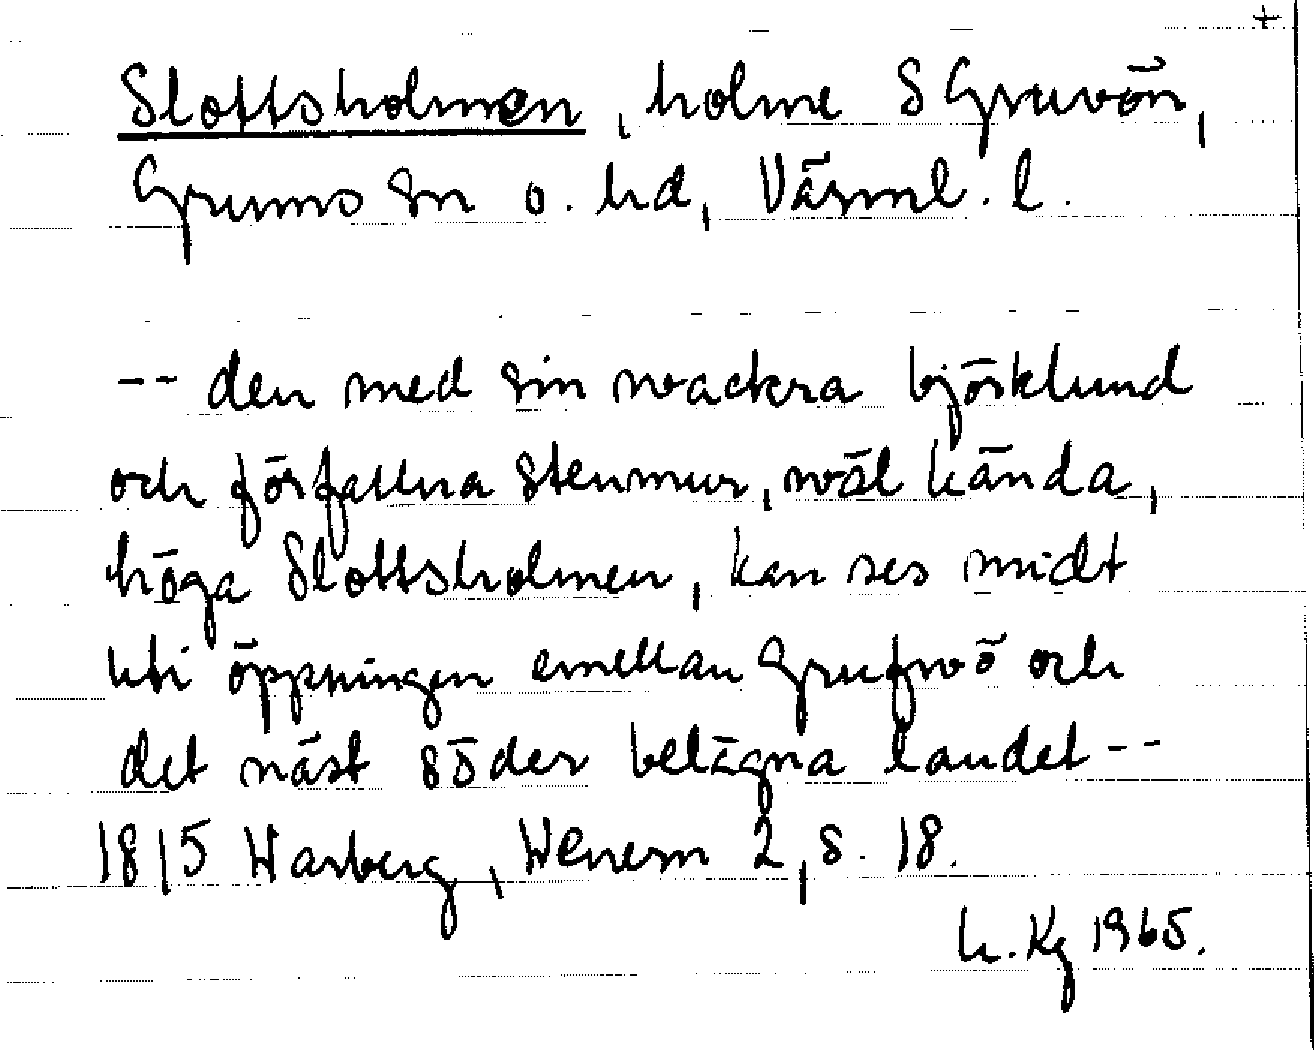 +
Slottsholmen, holme S Gruvön,
Grums sn o. hd, Värml. l.
-- den med sin wackra björklund
och förfallna stenmur, wäl kända,
höga Slottsholmen, kan ses midt
uti öppningen emellan Grufwö och
det näst söder belägna landet --
1815 Warberg, Wenern 2, s. 18.
h. Kg 1965.